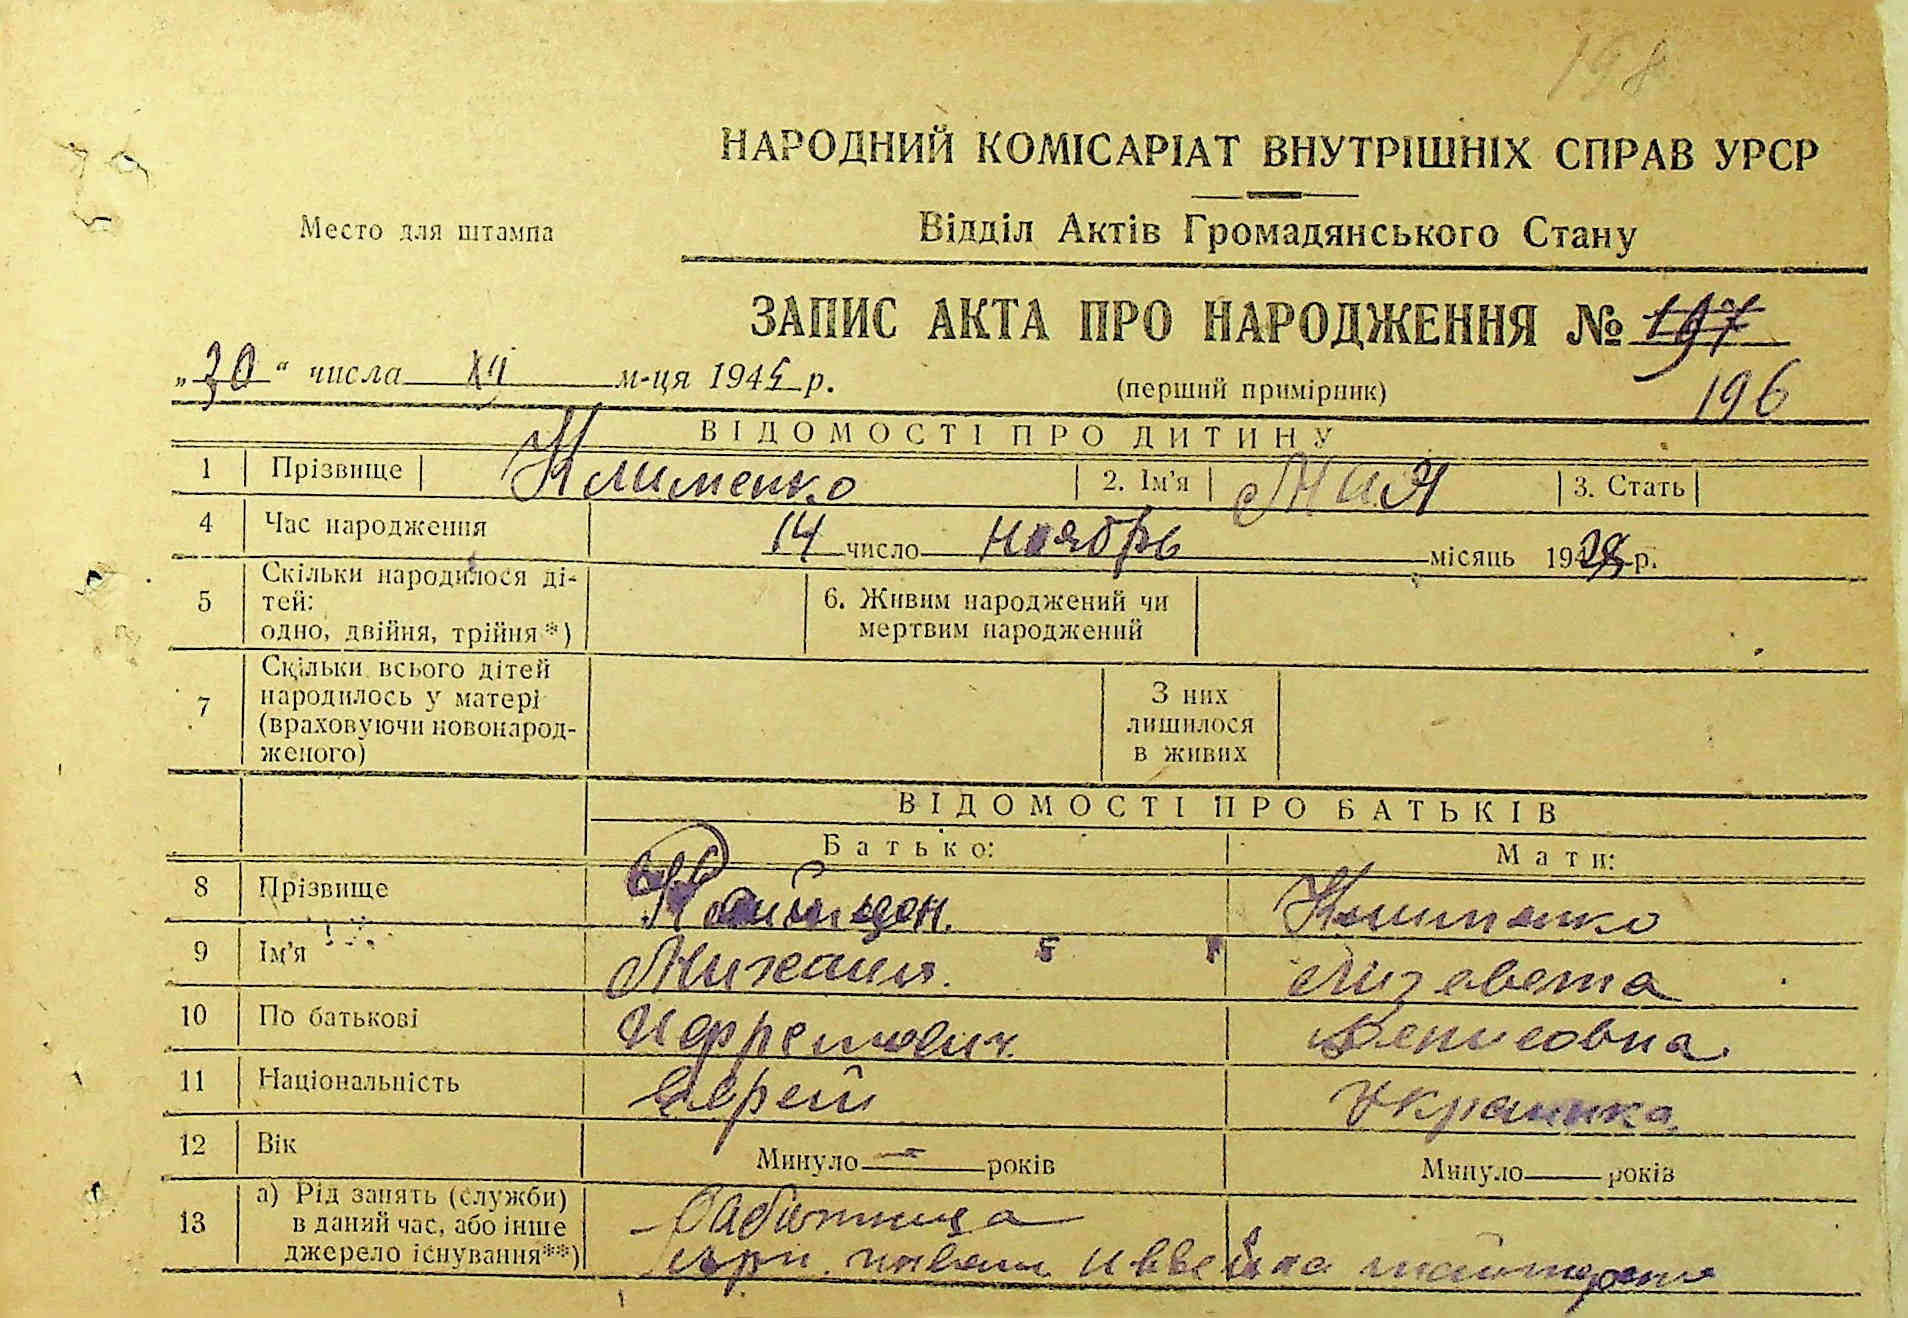 198
НАРОДНИЙ КОМІСАРІАТ ВНУТРІШНІХ СПРАВ УРСР
Место для штампа
Відділ Актів Громадянського Стану
ЗАПИС АКТА ПРО НАРОДЖЕННЯ № 197
„30“ числа XII м-ця 1945 р.
(перший примірник) 196
ВІДОМОСТІ ПРО ДИТИНУ
1 Прізвище Клименко 2. Ім'я Мия 3. Стать
4 Час народження 14 число ноябрь місяць 1928 р.
5 Скільки народилося ді-
тей:
одно, двійня, трійня*)
6. Живим народжений чи
мертвим народжений
7 Скільки всього дітей
народилось у матері
(враховуючи новонарод-
женого)
З них
лишилося
в живих
ВІДОМОСТІ ПРО БАТЬКІВ
Батько: Мати:
8 Прізвище Клименко
9 Ім'я Михаил Лизавета
10 По батькові Денисовна
11 Національність Еврей Украинка
12 Вік Минуло — років Минуло років
13 а) Рід занять (служби)
в даний час, або інше
джерело існування**)
Работница